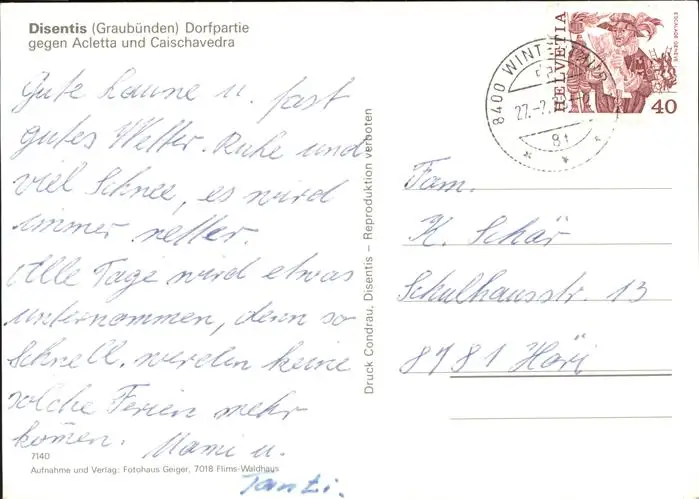 Disentis (Graubünden) Dorfpartie
gegen Acletta und Caischavedra
Gute Laune u. fast
gutes Wetter. Ruhe und
viel Schnee, es wird
immer netter.
Alle Tage wird etwas
unternommen, denn so
schnell, werden keine
solche Ferien mehr
kommen. Mami u.
Tanti.
7140
Aufnahme und Verlag: Fotohaus Geiger, 7018 Flims-Waldhaus
Druck Condrau, Disentis – Reproduktion verboten
8400 WINTERTHUR
27.-2.
81
HELVETIA
ESCALADE GENÈVE
40
Fam.
K. Schär
Schulhausstr. 13
8181 Höri